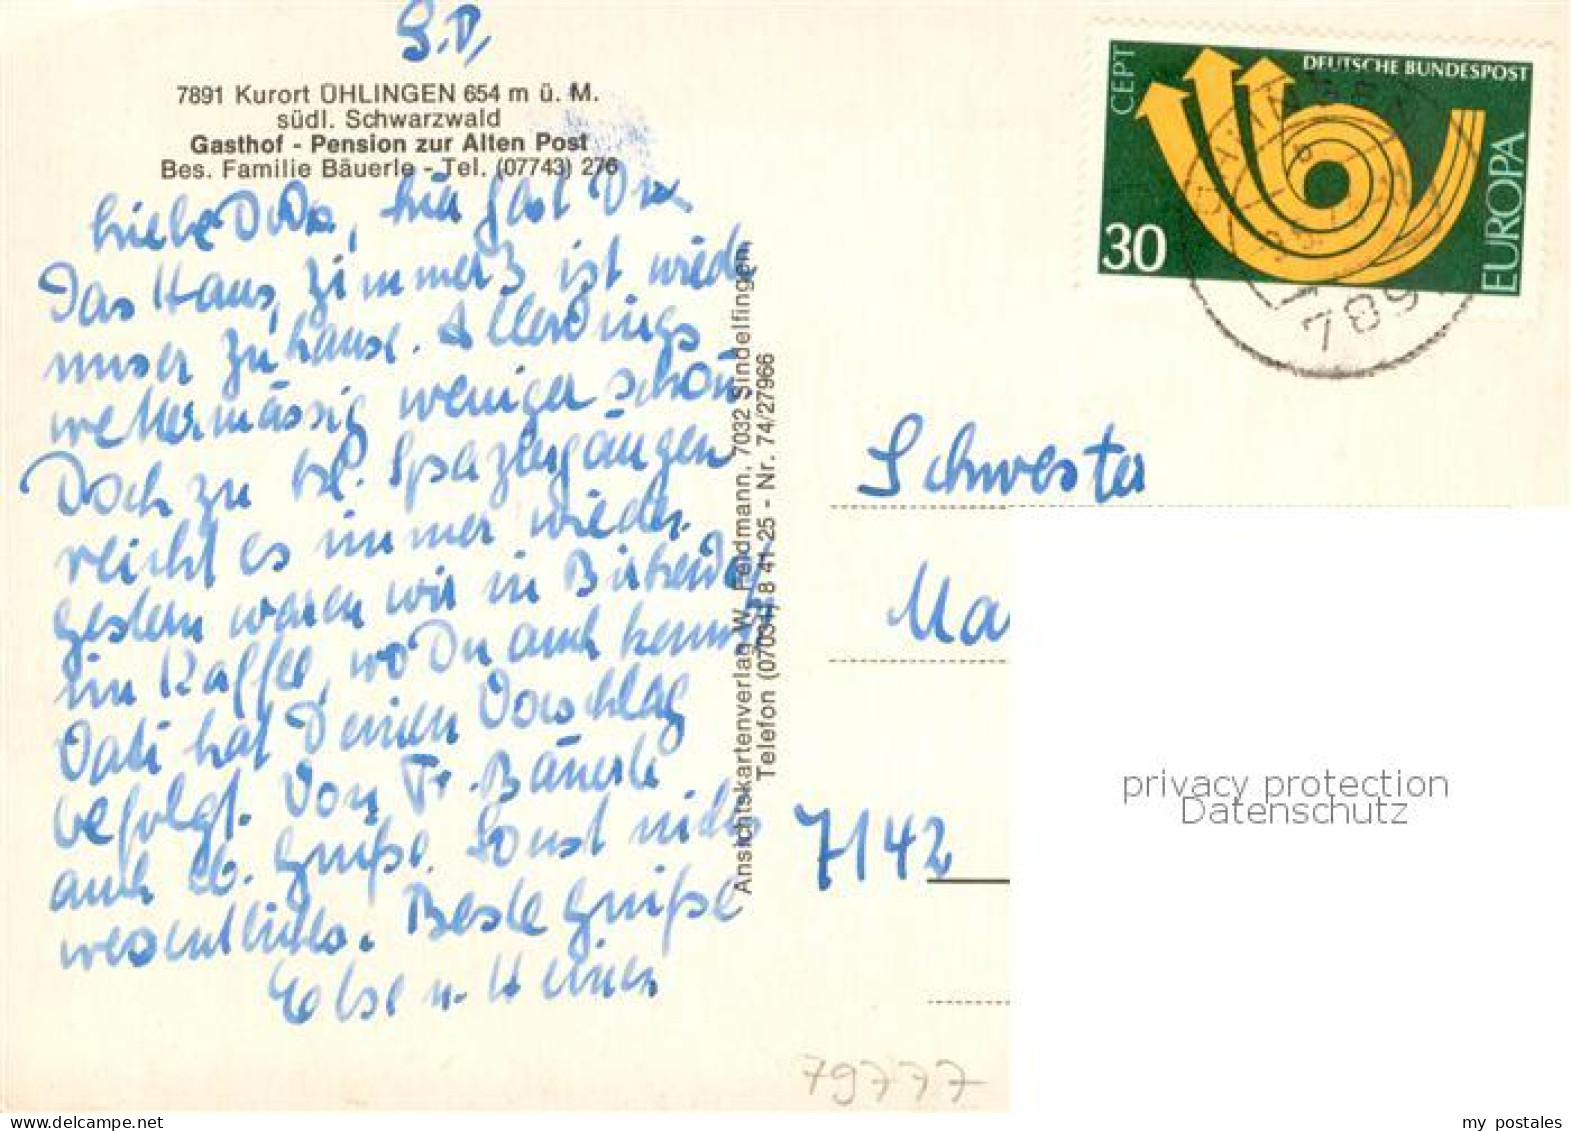 7891 Kurort ÜHLINGEN 654 m ü. M.
südl. Schwarzwald
Gasthof - Pension zur Alten Post
Bes. Familie Bäuerle - Tel. (07743) 276
Liebe Dida, hier hast Du
Das Haus, Zimmer 3 ist wieder
unser Zuhause. Allerdings
wettermässig weniger schön.
Doch zu kl. Spaziergängen
reicht es immer wieder.
gestern waren wir in Birkendorf
im Kaffee, wo Du auch kennst
Vati hat Deinen Vorschlag
befolgt. Von Fr. Bäuerle
auch lb. Grüße. Sonst nichts
wesentliches. Beste Grüße
Else u. Heiner
Ansichtskartenverlag W. Feldmann, 7032 Sindelfingen
Telefon (07031) 8 41 25 - Nr. 74/27966
CEPT
DEUTSCHE BUNDESPOST
30
EUROPA
789
Schwester
Ma
7142
privacy protection
Datenschutz
79777
myfavnet.com
my postales